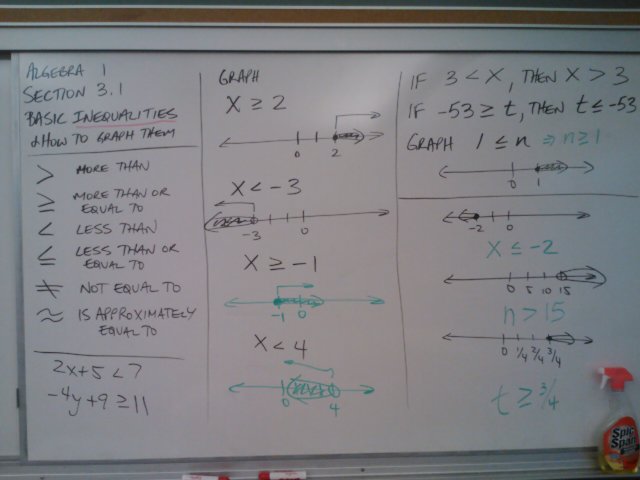 ALGEBRA 1
SECTION 3.1
BASIC INEQUALITIES
& HOW TO GRAPH THEM
> MORE THAN
≥ MORE THAN OR
EQUAL TO
< LESS THAN
≤ LESS THAN OR
EQUAL TO
≠ NOT EQUAL TO
≈ IS APPROXIMATELY
EQUAL TO
2x+5<7
-4y+9≥11
GRAPH
X ≥ 2
0 2
X < -3
-3 0
X ≥ -1
-1 0
X < 4
0 4
IF 3 < X, THEN X > 3
IF -53 ≥ t, THEN t ≤ -53
GRAPH 1 ≤ n ⇒ n ≥ 1
0 1
-2 0
X ≤ -2
0 5 10 15
n > 15
0 1/4 2/4 3/4
t ≥ 3/4
Spic
Span